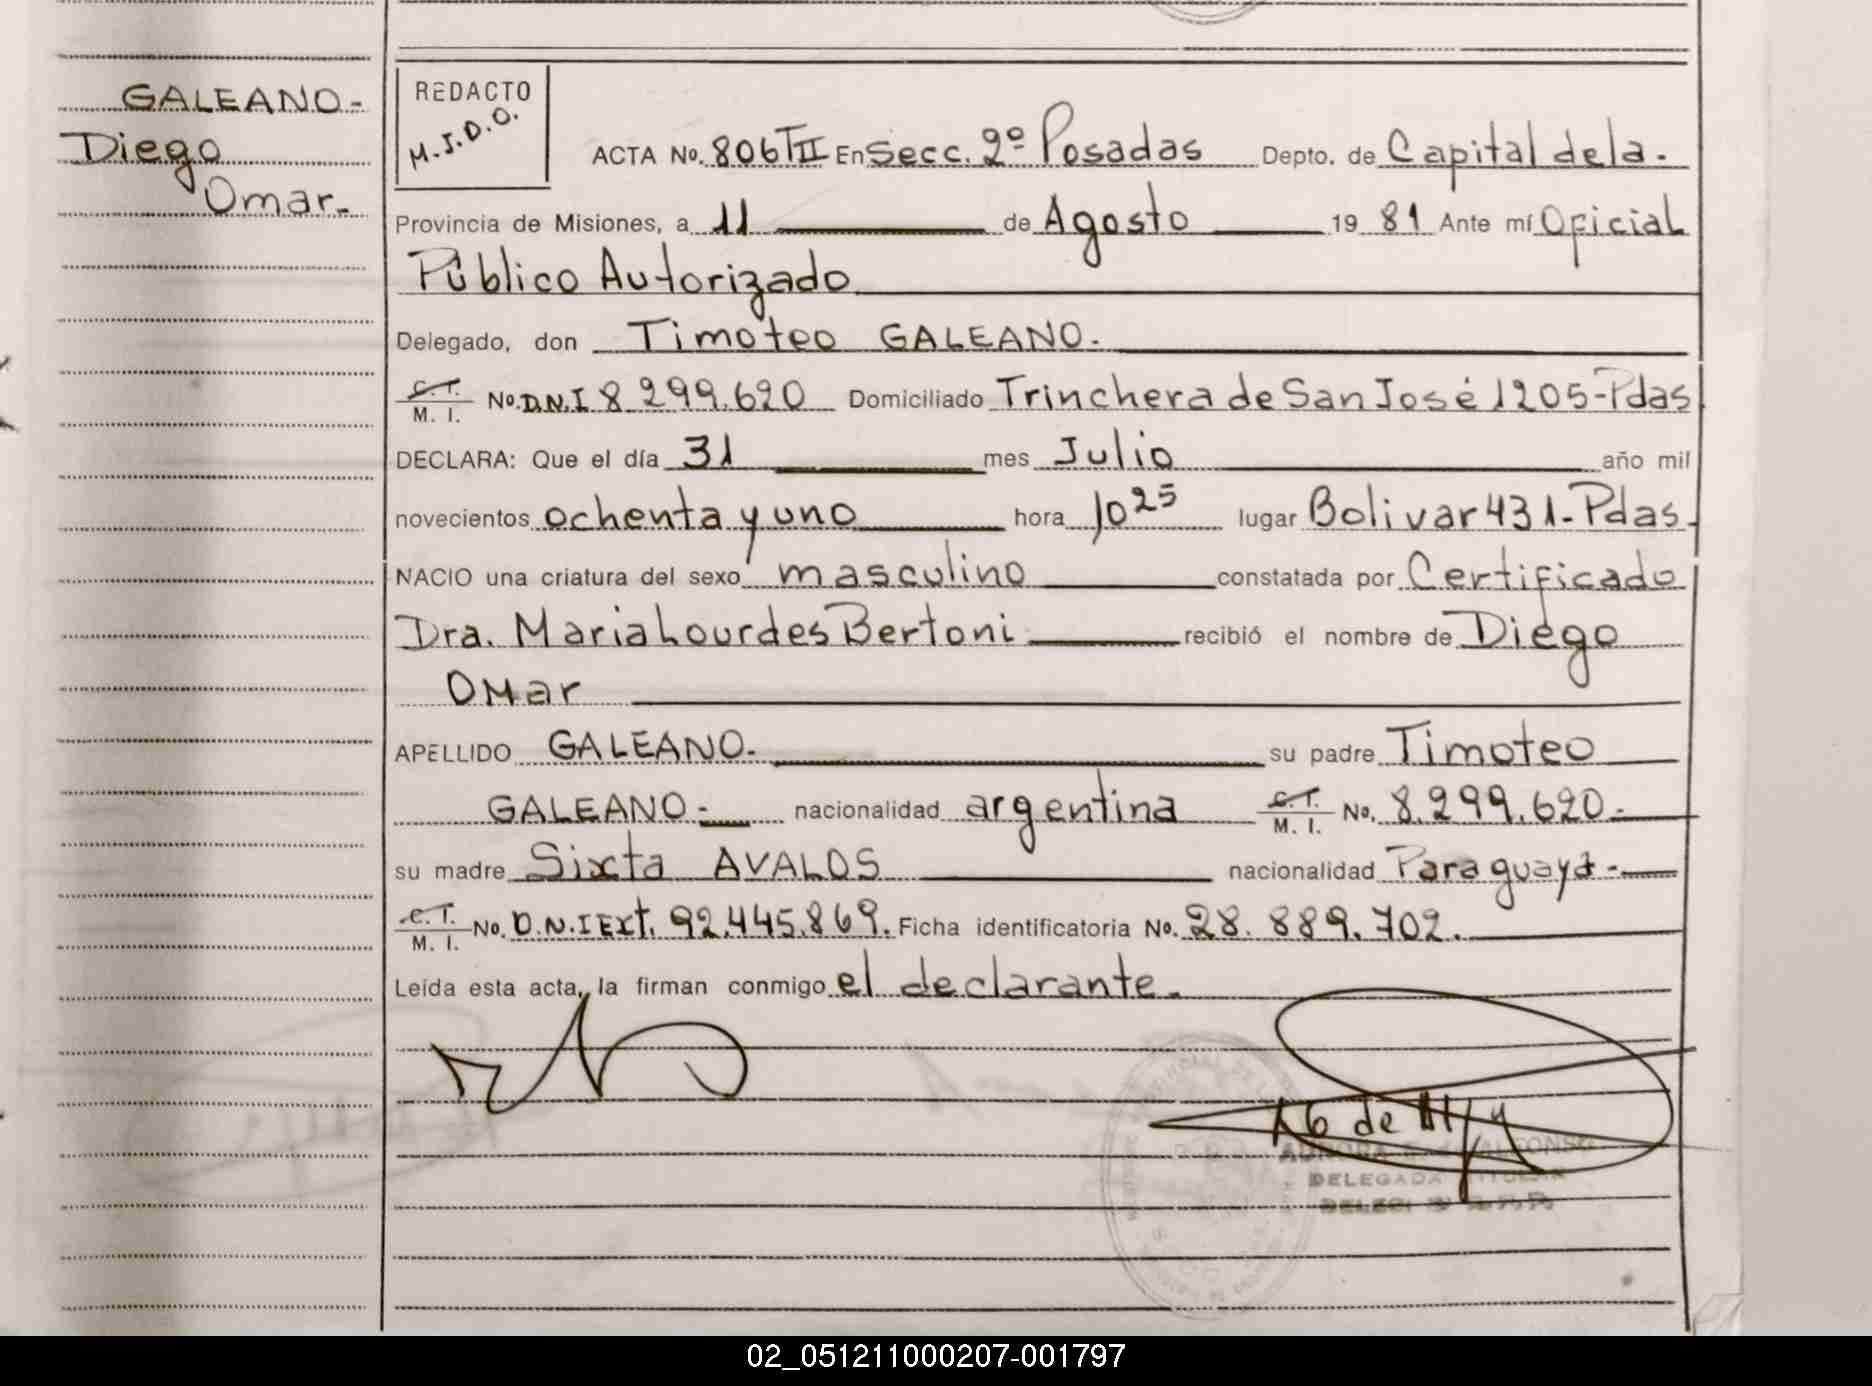 GALEANO-
Diego
Omar-
REDACTO
M.J.D.O.
ACTA No. 806TII En Secc. 2º Posadas Depto. de Capital de la.
Provincia de Misiones, a 11 de Agosto 19 81 Ante mí Oficial
Público Autorizado
Delegado, don Timoteo GALEANO.
C.I. M. I. No. D.N.I 8.299.620 Domiciliado Trinchera de San José 1205-Pdas
DECLARA: Que el día 31 mes Julio año mil
novecientos ochenta y uno hora 10 25 lugar Bolivar 431-Pdas.
NACIO una criatura del sexo masculino constatada por Certificado
Dra. Maria Lourdes Bertoni recibió el nombre de Diego
Omar
APELLIDO GALEANO. su padre Timoteo
GALEANO- nacionalidad argentina C.I. M. I. No. 8.299.620-
su madre Sixta AVALOS nacionalidad Paraguaya-
C.I. M. I. No. D.N.I Ext. 92.445.869. Ficha identificatoria No. 28.889.702.
Leída esta acta, la firman conmigo el declarante.
DELEGADA TITULAR
02_051211000207-001797